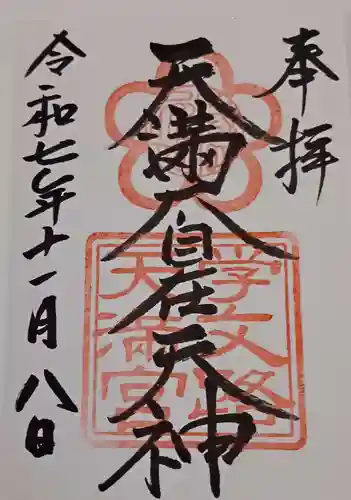 奉拝
天満大自在天神
学文路
天満宮
令和七年十一月八日